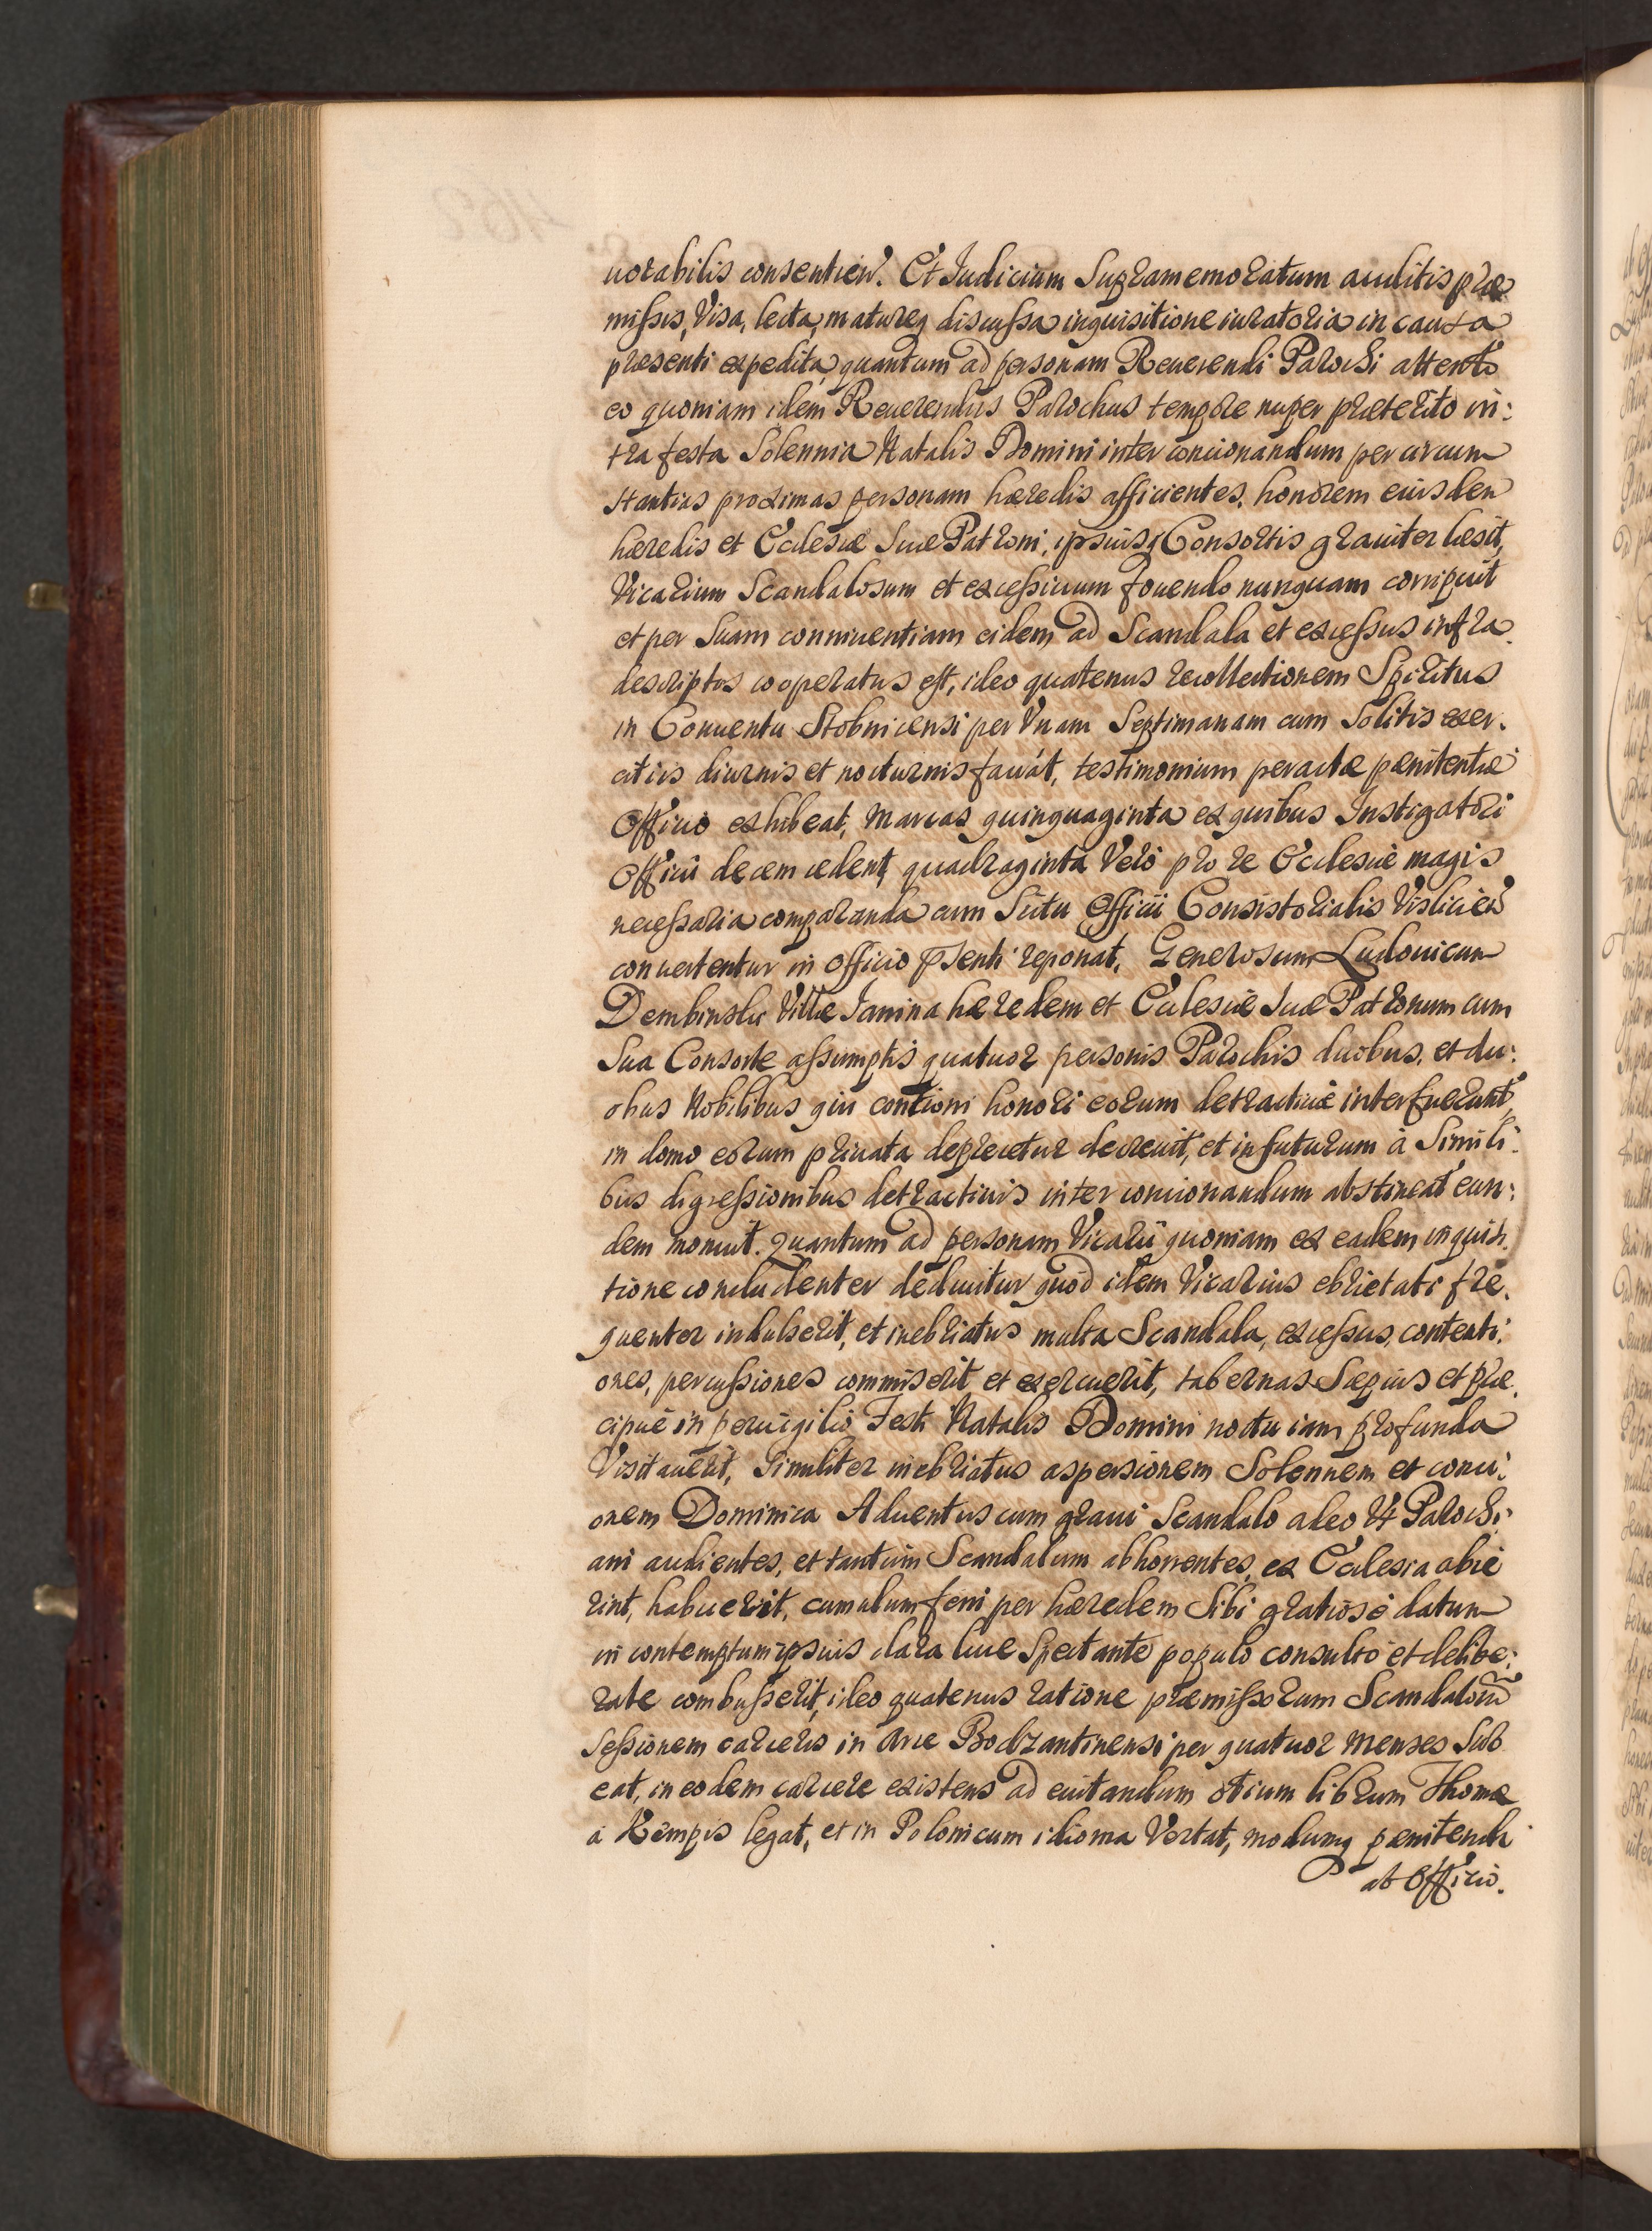 uorabilis consentien. Et Iudicium Supramemoratum auditis præ
missis, Visa, lecta, matureq discussa inquisitione iuratoria in causa
præsenti expedita, quantum ad personam Reuerendi Parochi attento
eo quoniam idem Reuerendus Parochus tempore nuper præterito in:
tra festa Solennia Natalis Domini inter concionandum per circum
stantias proximas personam hæredis afficientes, honorem eiusdem
hæredis et Ecclesiæ Suæ Patroni, ipsiusq Consortis grauiter læsit,
Vicarium Scandalosum et excessiuum fouendo nunquam corripuit
et per Suam conniuentiam eidem ad Scandala et excessus infra
descriptos cooperatus est, ideo quatenus recollectionem Spiritus
in Conuentu Stobnicensi per Vnam Septimanam cum Solitis exer.
citiis diurnis et nocturnis faciat, testimonium peractæ pænitentiæ
Officio exhibeat, Marcas quinquaginta ex quibus Instigatori
Officii decem cedent, quadraginta Verò pro re Ecclesiæ magis
necessaria comparanda cum Scitu Officii Consistorialis Vislicien
conuertentur in Officio pśenti reponat, Generosum Ludouicum
Dembinski Villæ Ianina hæredem et Ecclesiæ Suæ Patronum cum
Sua Consorte assumptis quatuor personis Parochis duobus, et du:
obus Nobilibus qui contioni honori eorum detractiuæ interfuerunt,
in domo eorum priuata deprecetur decreuit, et in futurum à Simili:
bus digressionibus detractiuis inter concionandum abstineat eun:
dem monuit. Quantum ad personam Vicarii quoniam ex eadem inquisi.
tione concludenter deducitur quòd idem Vicarius ebrietati fre.
quenter indulserit, et inebriatus multa Scandala, excessus, contenti:
ones, percussiones commiserit et exercuerit, tabernas Sæpius et præ.
cipuè in peruigilio Festi Natalis Domini noctu iam profunda
Visitauerit, Similiter inebriatus aspersionem Solennem et conci:
onem Dominica Aduentus cum graui Scandalo adeo Vt Parochi:
ani audientes, et tantum Scandalum abhorrentes, ex Ecclesia abie
rint, habuerit, cumulum feni per hæredem Sibi gratiosè datum
in contemptum ipsius clara luce Spectante populo consultò et delibe:
rate combusserit, ideo quatenus ratione præmissorum Scandaloru
Sessionem carceris in Arce Bodzantinensi per quatuor Menses Sub
eat, in eodem carcere existens ad euitandum otium librum Thomæ
à Kempis legat, et in Polonicum idioma Vertat, modumq pænitendi
ab Officio.